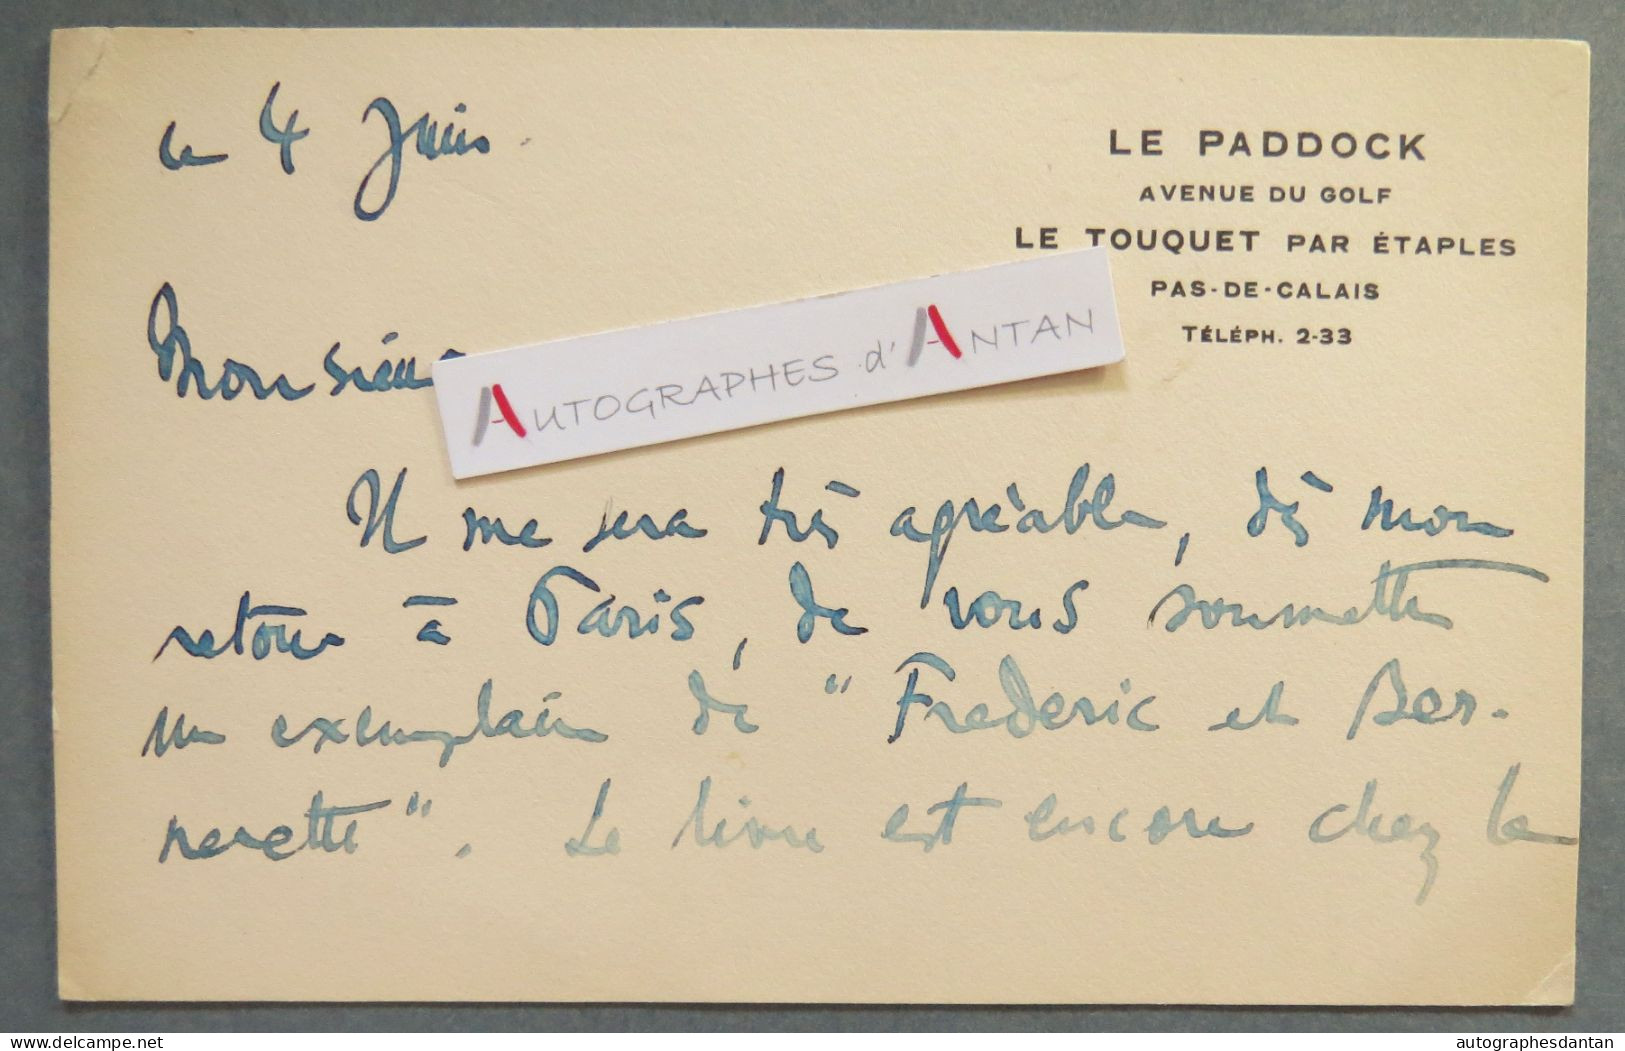 le 4 Juin.
LE PADDOCK
AVENUE DU GOLF
LE TOUQUET PAR ÉTAPLES
PAS-DE-CALAIS
TÉLÉPH. 2-33
Monsieur
AUTOGRAPHES d'ANTAN
Il me sera très agréable, dès mon
retour à Paris, de vous soumettre
un exemplaire de "Frederic et Ber-
nerette". Le livre est encore chez le
delcampe.net
autographesdantan